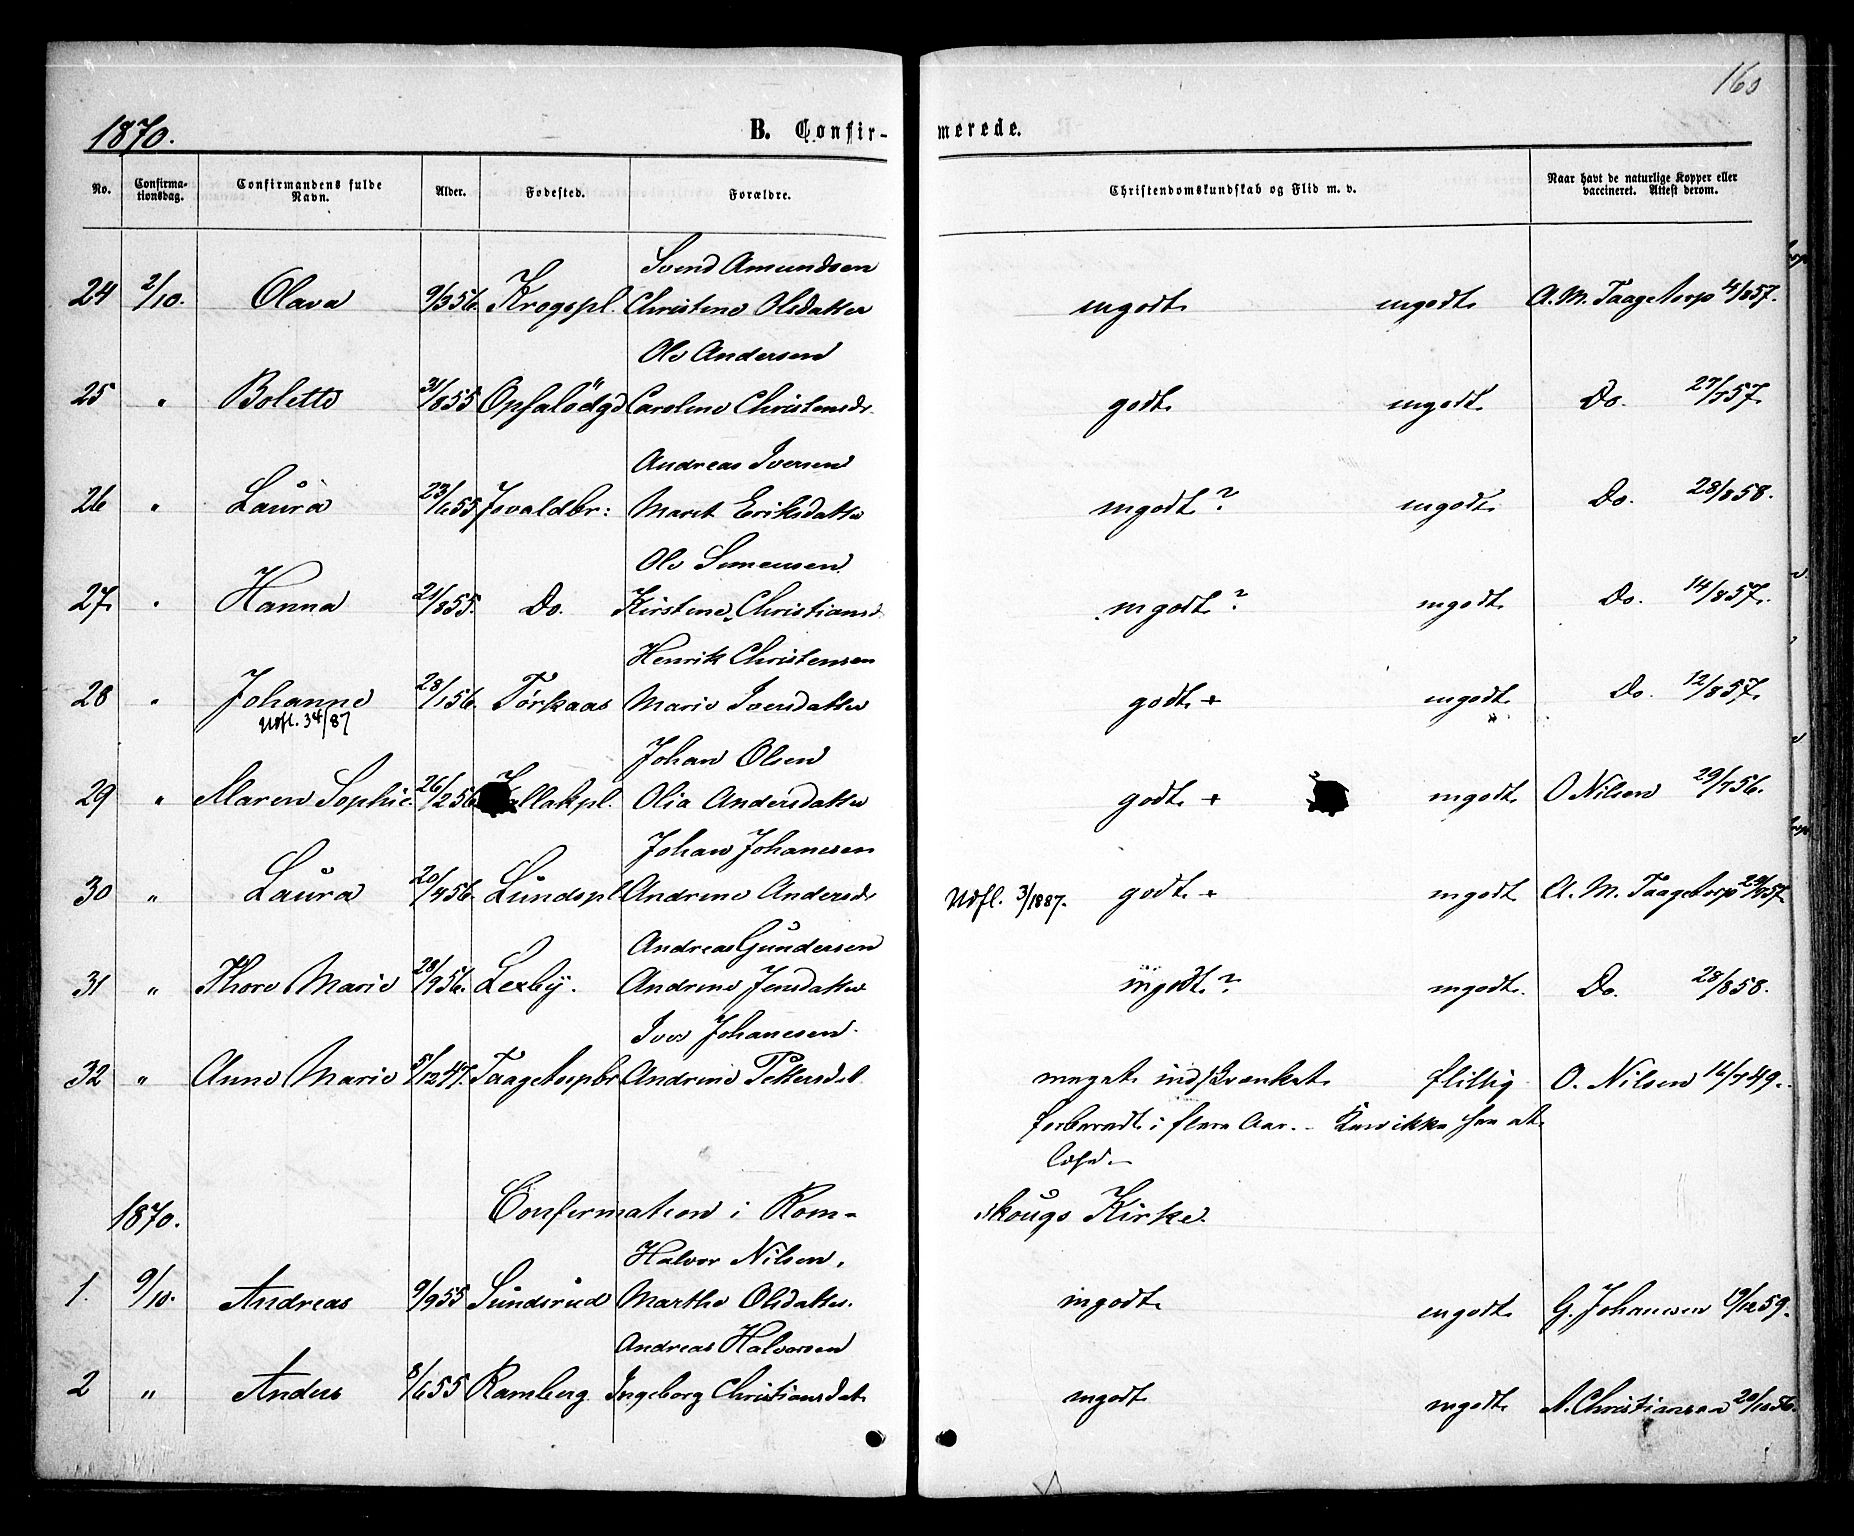 160
1870. B. Confir- merede.
No. Confirma-tionsdag. Confirmandens fulde Navn. Alder. Fødested. Forældre. Christendomskundskab og Flid m. v. Naar havt de naturlige Kopper eller vaccineret. Attest derom.
Svend Amundsen
24 2/10. Olava 9/3 56. Krogspl. Christine Olsdatter mgodt. mgodt. A. M. Taagetorp 4/8 57.
Ole Andersen
25 " Bolette 31/8 55 Opfalødgd Caroline Christensdr. godt. mgodt. Do. 27/7 57.
Andreas Iversen
26 " Laura 23/6 55 Isvaldbr: Maret Eriksdatter mgodt? mgodt. Do. 28/8 58.
Ole Simensen
27. " Hanna 21/8 55. Do. Kirstine Christiansd. mgodt? mgodt. Do. 14/8 57.
Henrik Christensen
28 " Johanne 28/1 56. Tørkaas Marie Iversdatter godt + mgodt. Do. 12/8 57.
Udfl. 34/87
Johan Olsen
29 " Maren Sophie. 26/2 56 allakpl. Olia Andersdatter godt + mgodt. O Nilsen 29/7 56.
Johan Johanesen
30 " Laura 20/4 56. Lundspl Andrine Andersdr Udfl. 3/1887. godt + mgodt. A. M. Taagetorp 29/8 57
Andreas Gundersen
31 " Thore Marie 28/9 56. Lexby. Andrine Jensdatter mgodt? mgodt. Do. 28/8 58.
Iver Johanesen
32 " Anne Marie 5/12 47. Taagetorpbr Andrine Pettersdat. meget indskrænket. flittig O. Nilsen 16/7 49.
forberedt i flere Aar. - Kunde ikke lære at
læse. -
1870. Confirmation i Rom- skougs Kirke.
Halvor Nilsen.
1. 9/10. Andreas 9/9 55 Sundsrud Marthe Olsdatter. mgodt. mgodt. G. Johanesen 19/12 59.
Andreas Halvorsen
2 " Anders 8/6 55 Ramberg Ingeborg Christiansdat. mgodt. mgodt. N. Christiansen 20/10 56.